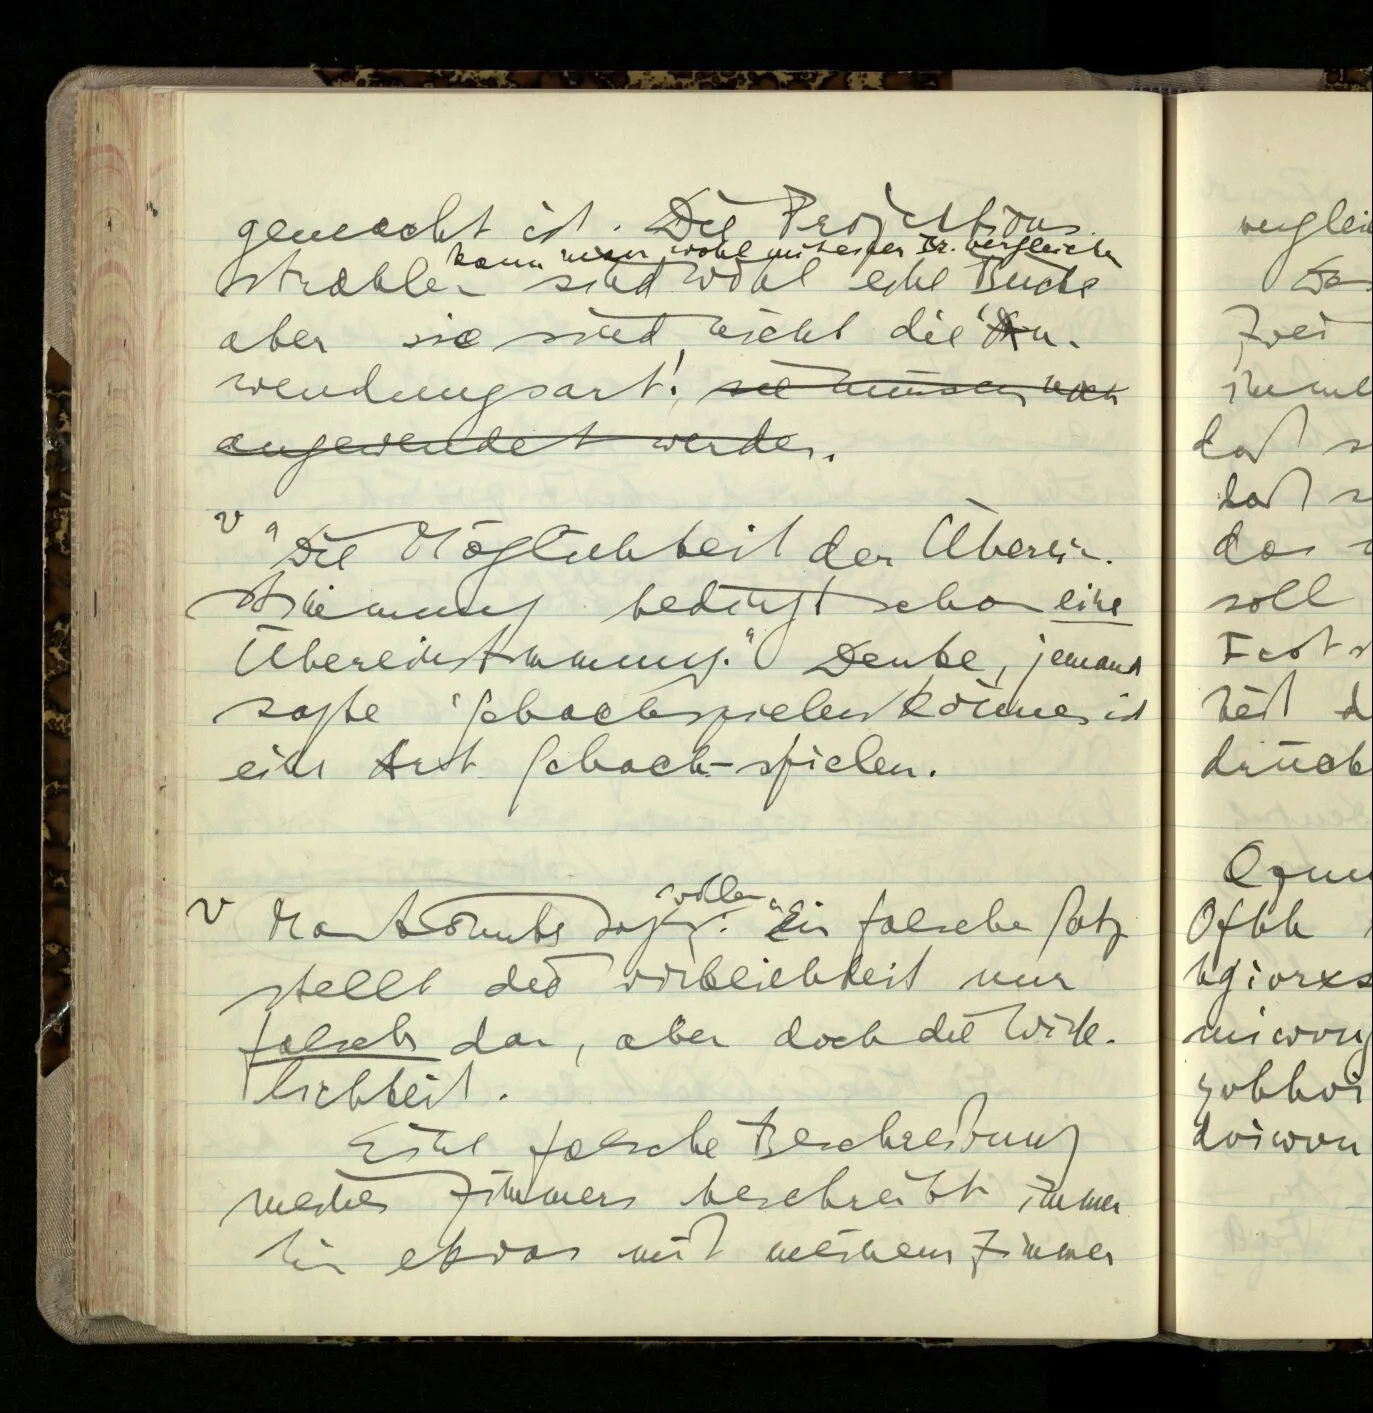 gemacht ist. Die Projektions-
kann man wohl mit einer Br. vergleichen
strahlen sind wohl eine Brücke
aber sie sind nicht die An-
wendungsart!, sie müssen noch
angewendet werden.
v "Die Möglichkeit der Überein-
stimmung bedingt schon eine
Übereinstimmung." Denke, jemand
sagte 'Schachspielen können ist
eine Art Schach-spielen.
wollen
v Man könnte sagen: "Ein falscher Satz
stellt die Wirklichkeit nur
falsch dar, aber doch die Wirk-
lichkeit.
Eine falsche Beschreibung
meines Zimmers beschreibt immer-
hin etwas mit meinem Zimmer
verglei
Zwei
imme
daß s
daß
das
soll
Fest
heit d
drück
Ofhh
ngiorxs